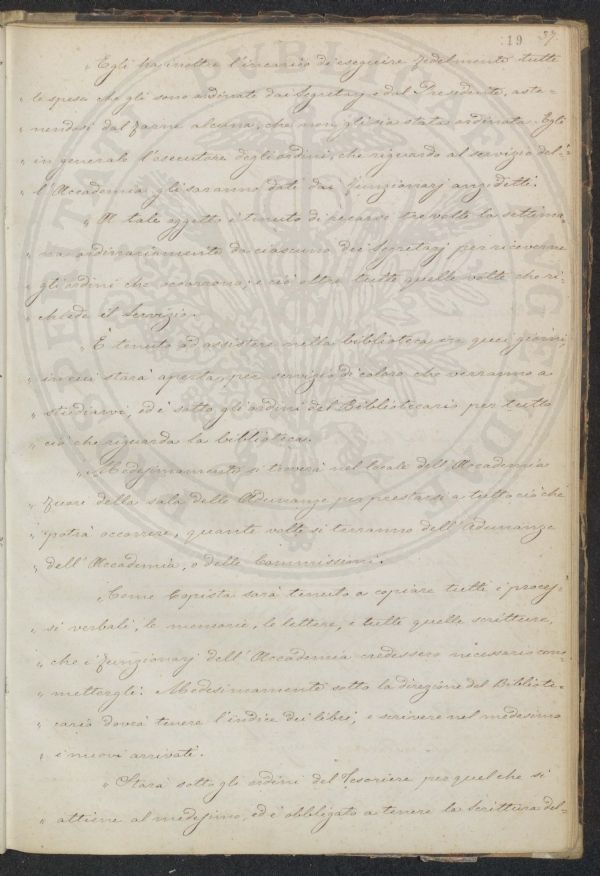 19 37.
„ Egli ha inoltre l'incarico di eseguire fedelmente tutte
„ le spese che gli sono ordinate dai Segretarj e dal Presidente, aste-
„ nendosi dal farne alcuna, che non gli sia stata ordinata. Egli è
„ in generale l'esecutore degli ordini, che riguardo al servizio del-
„ l'Accademia gli saranno dati dai funzionarj anzidetti.
„ A tale oggetto è tenuto di recarsi tre volte la settima-
„ na ordinariamente da ciascuno dei Segretarj per riceverne
„ gli ordini che occorrono; e ciò oltre tutte quelle volte che ri-
„ chiede il servizio.
„ È tenuto ad assistere nella biblioteca in quei giorni,
„ in cui starà aperta, per servizio di coloro che verranno a
„ studiarvi, ed è sotto gli ordini del Bibliotecario per tutto
„ ciò che riguarda la biblioteca.
„ Medesimamente si troverà nel locale dell'Accademia
„ fuori della sala delle Adunanze per prestarsi a tutto ciò che
„ potrà occorrere, quante volte si terranno dell'Adunanze
„ dell'Accademia, o delle Commissioni.
„ Come Copista sarà tenuto a copiare tutti i proces-
„ si verbali, le memorie, le lettere, e tutte quelle scritture,
„ che i funzionarj dell'Accademia credessero necessario com-
„ mettergli. Medesimamente sotto la direzione del Bibliote-
„ cario dovrà tenere l'indice dei libri, e scrivere nel medesimo
„ i nuovi arrivati.
„ Starà sotto gli ordini del Tesoriere per quel che si
„ attiene al medesimo, ed è obbligato a tenere la scrittura del-
PROSPERITATI PUBLICAE AUGENDAE